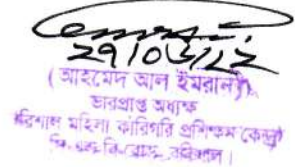 29/05/12
(আহমেদ আল ইমরান)
ভারপ্রাপ্ত অধ্যক্ষ
বরিশাল মহিলা কারিগরি প্রশিক্ষণ কেন্দ্র
বরিশাল।